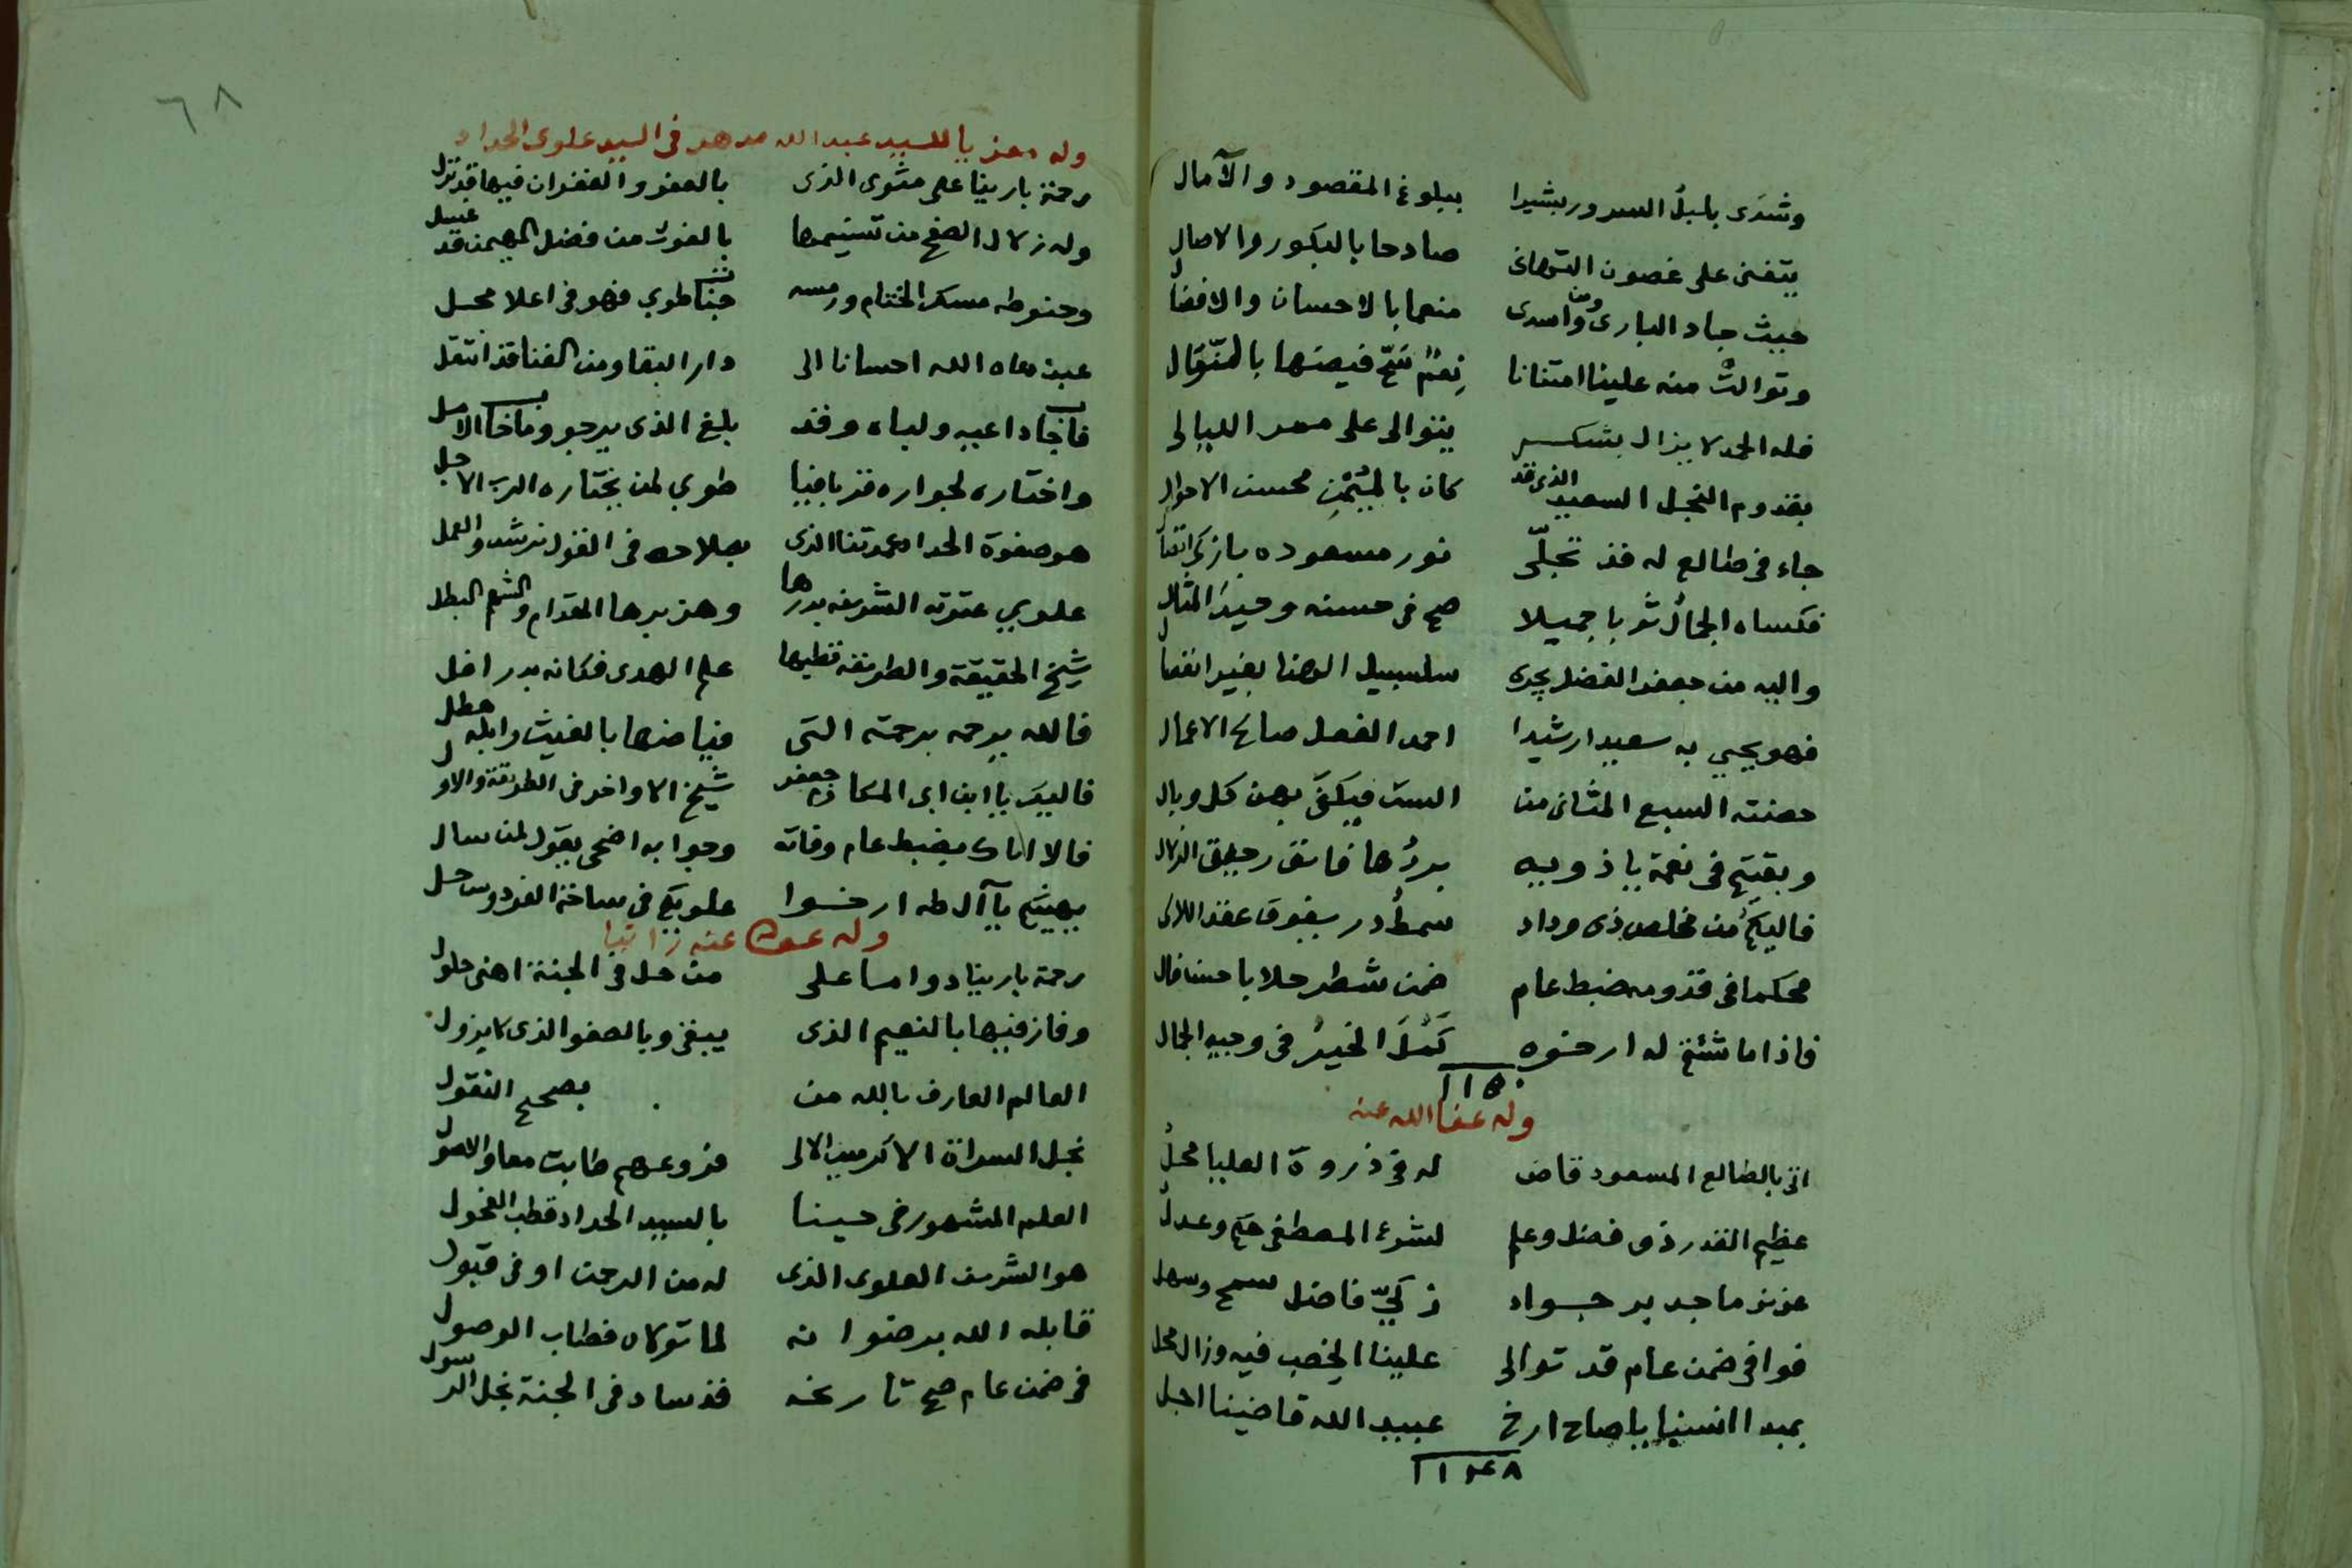 وشدى بلبل السرور بشيرا ببلوغ المقصود والآمال
يتغنى على غصون التهانى صادحا بالبكور والاصال
حيث جاد البارى ومنّ واسدى منعما بالاحسان والافضال
وتوالت منه علينا امتنانا نعم سح فيضها بالتوال
فله الحمد لا يزال بشكر يتوالى على ممر الليالى
بقدوم النجل السعيد الذى قد كان باليمن محسن الاحوال
جاء فى طالع له قد تجلّى نور مسعوده بازكى اتصال
فكساه الجمال ثوبا جميلا صح فى حسنه وحيد المثال
واليه من جعفر الفضل يجرى سلسبيل الهنا بغير انفصال
فهو يحيي به سعيدا رشيدا احمد الفعل صالح الاعمال
حصنته السبع المثانى من الست فيكفى بهن كل وبال
وبقيتم فى نعمة يا ذويه بردها فائق رحيق الزلال
فاليكم من مخلص ذى وداد سمط در يفوق عقد اللالى
محكما فى قدومه ضبط عام ضمن شطر حلا باحسن فال
فاذا ما شئتم له ارخوه كمل الخير فى وجيه الجمال
١١٥٠
وله عفا الله عنه
اتى بالطالع المسعود قاض له فى ذروة العليا محل
عظيم القدر ذى فضل وعلم لشرع المصطفى حكم وعدل
عزيز ماجد بر جواد زكيّ فاضل سمح وسهل
فوافى ضمن عام قد توالى علينا الخصب فيه وزال محل
بمبدا انسنا يا صاح ارخ عبيد الله قاضينا اجل
١١٤٨
٦٨
وله معزيا للسيد عبد الله مدهر فى السيد علوى الحداد
رحمة بارينا على مثوى الذى بالعفو والغفران فيها قد نزل
وله زلال الصفح من تسنيمها بالفوز من فضل المهيمن قد غسل
وحنوطه مسك الختام ورمسه جنات طوبى فهو فى اعلا محل
عبد دعاه الله احسانا الى دار البقا ومن الفنا قد انتقل
فاجاب داعيه ولباه وقد بلغ الذى يرجو وما خاب الامل
واختاره لجواره قربا فيا طوبى لمن يختاره الرب الاجل
هو صفوة الحداد عمدتنا الذى بصلاحه فى القول نرشد والعمل
علوي عترته الشريفه بدرها وهزبرها المقدام والشهم البطل
شيخ الحقيقة والطريقه قطبها علم الهدى فكانه بدر افل
فالله يرحمه برحمته التى فياضها بالغيث وابله هطل
فاليك يا ابن ابى المكارم جعفر شيخ الاواخر فى الطريقة والاول
فالا اتاك بضبط عام وفاته وجوابه اضحى يقول لمن سال
بهنيتم يا آل طه ارخوا علويكم فى ساحة الفردوس حل
وله عفا عنه راثيا
رحمة بارينا دواما على من حل فى الجنة اهنى حلول
وفاز فيها بالنعيم الذى يبقى وبالصفو الذى لا يزول
العالم العارف بالله من بصحيح النقول
نجل السراة الاكرمين الالى فروعهم طابت معا والاصول
العلم المشهور فى حينا بالسيد الحداد قطب الفحول
هو الشريف العلوى الذى له من الرحمن اوفى قبول
قابله الله برضوانه لما تولاه فطاب الوصول
فى ضمن عام صح تاريخه قد ساد فى الجنة نجل الرسول